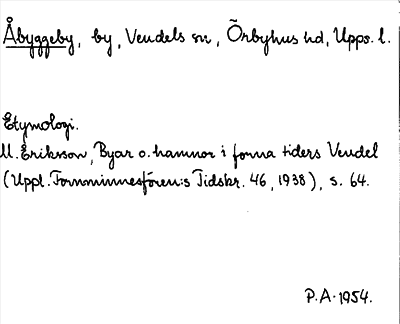 Åbyggeby, by, Vendels sn, Örbyhus hd, Upps. l.
Etymologi.
M. Eriksson, Byar o. hamnor i forna tiders Vendel
(Uppl. Fornminnesfören:s Tidskr. 46, 1938), s. 64.
P.A. 1954.